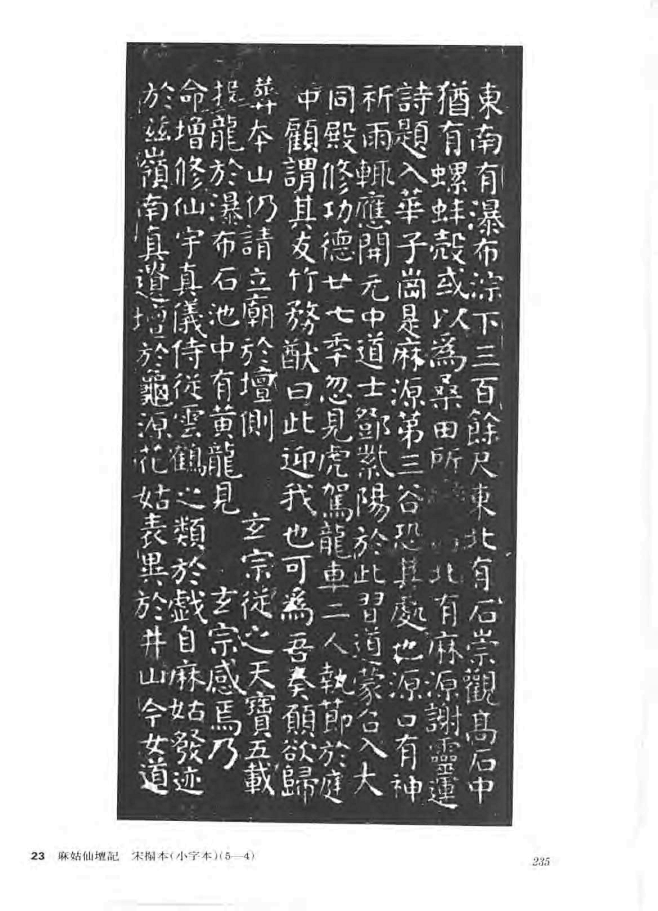 東南有瀑布淙下三百餘尺東北有石崇觀高石中
猶有螺蚌殼或以為桑田所北有麻源謝靈運
詩題入華子崗是麻源第三谷恐其處也源口有神
祈雨輒應開元中道士鄧紫陽於此習道蒙召入大
同殿修功德廿七季忽見虎駕龍車二人執節於庭
中顧謂其友竹務猷曰此迎我也可為吾奏願欲歸
葬本山仍請立廟於壇側 玄宗從之天寶五載
投龍於瀑布石池中有黃龍見 玄宗感焉乃
命增修仙宇真儀侍從雲鶴之類於戲自麻姑發迹
於茲嶺南真遺壇於龜源花姑表異於井山今女道
23 麻姑仙壇記 宋榻本(小字本)(5—4)
235